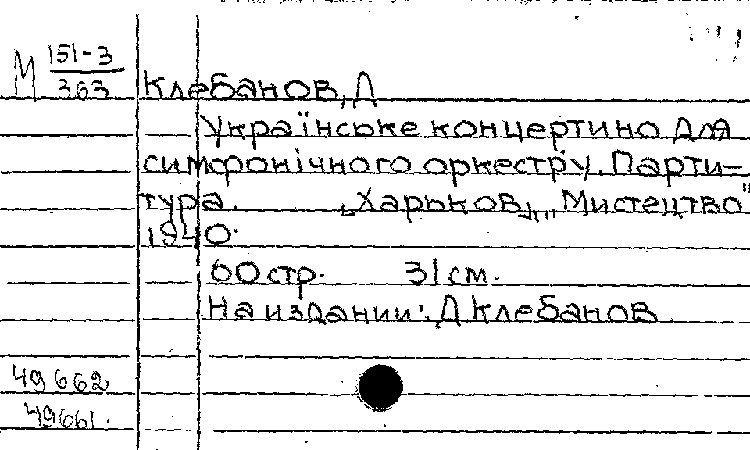 М 151-3
363
Клебанов, Д
Українське концертино для
симфонічного оркестру. Парти-
тура. „Харьков", „Мистецтво"
1940.
60 стр. 31 см.
На издании: Д Клебанов
49662
49661.